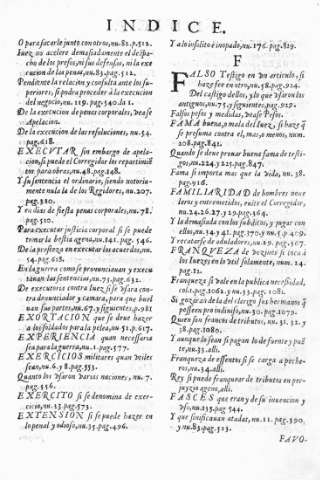 INDICE.
O para hacerlo junto con otros, nu. 82. p. 512.
Iuez no acelere demasiadamente el despa-
cho de los presos, ni sus defensas, ni la exe
cucion de las penas, nu. 83. pag. 512.
Pendente la relacion y consulta ante los su-
periores, si podra proceder a la execucion
del negocio, nu. 119. pag. 540. la 1.
De la execucion de penas corporales, vease
Apelacion.
De la execucion de las resoluciones, nu. 54.
pag. 618.
EXECVTAR sin embargo de apela-
cion, si puede el Corregidor los repartimiē
tos para obras, nu. 48. pag. 248.
Y su sentencia el ordinario, siendo notoria-
mente nula la de los Regidores, nu. 207.
pag. 310.
Y ro dias de fiesta penas corporales, nu. 78.
pag. 510.
Para executar justicia corporal si se puede
tomar la bestia agena, nu. 141. pag. 546.
De la presteza en executar los acuerdos, nu.
54. pag. 618.
En la guerra como se pronuncian y execu
tan las sentencias, nu. 75. pag. 632.
De executoria contra Iuez, si se usara con-
tra don vecindador y camara, para que buel
van sus partes, nu. 67. y siguientes, p. 981
EXORTACION que se deve hazer
a los soldados para la pelea, nu. 51. p. 617.
EXPERIENCIA quan necessaria
sea para la guerra, nu. 1. pag. 577.
EXERCICIOS militares quan utiles
sean, nu. 6. y 8. pag. 553.
Quanto los usaron varias naciones, nu. 7.
pag. 556.
EXERCITO si se denomina de exer-
cicio, nu. 23. pag. 573.
EXTENSION si se puede hazer en
lo penal y odioso, nu. 35. pag. 496.
Y a lo insolito è inopado, nu. 176. pag. 829.
F
FALSO Testigo en un articulo, si
haze fee en otro, nu. 58. pag. 924.
Del castigo dellos, y lo que usaron los
antiguos, nu. 75. y siguientes, pag. 929.
Falsos pesos y medidas, vease Pesos.
FAMA buena, o mala del Iuez, si haze q̃
se presuma contra el, mas, o menos, num.
208. pag. 841.
Quando se deve provar buena fama de testi-
gos, nu. 224. y 225. pag. 847.
Fama si importa mas que la vida, nu. 38.
pag. 916.
FAMILIARIDAD de hombres noce
leros y entremetidos, evite el Corregidor,
nu. 24. 26. 27. y 29. pag. 364.
Y la demasiada con los subditos, y jugar con
ellos, nu. 34. y 41. pag. 370. y nu. 5. p. 409.
Y recatarse de aduladores, nu. 29. pag. 367.
FRANQUEZA de vezinos si toca à
los Iuezes en la del solamente, num. 24.
pag. 12.
Franqueza si vale en la publica necessidad,
col. 1. pag. 106. 2. y nu. 33. pag. 108.
Si guzaras de la del clerigo los hermanos q̃
posseen pro indiviso, nu. 30. pag. 1079.
Quien sea franco de tributos, nu. 31. 32. y
38. pag. 1080.
Y aunque lo sean si pagan lo de fuente y puē
te, nu. 33. alli.
Franqueza de essentos si se carga a peche-
ros, nu. 34. alli.
Rey si puede franquear de tributos en per-
juyzio ageno, alli.
FASCES que eran y de su invencion y
uso, nu. 123. pag. 544.
Y que sinificavan atadas, nu. 21. pag. 390.
y nu. 83. pag. 513.
FAVO-